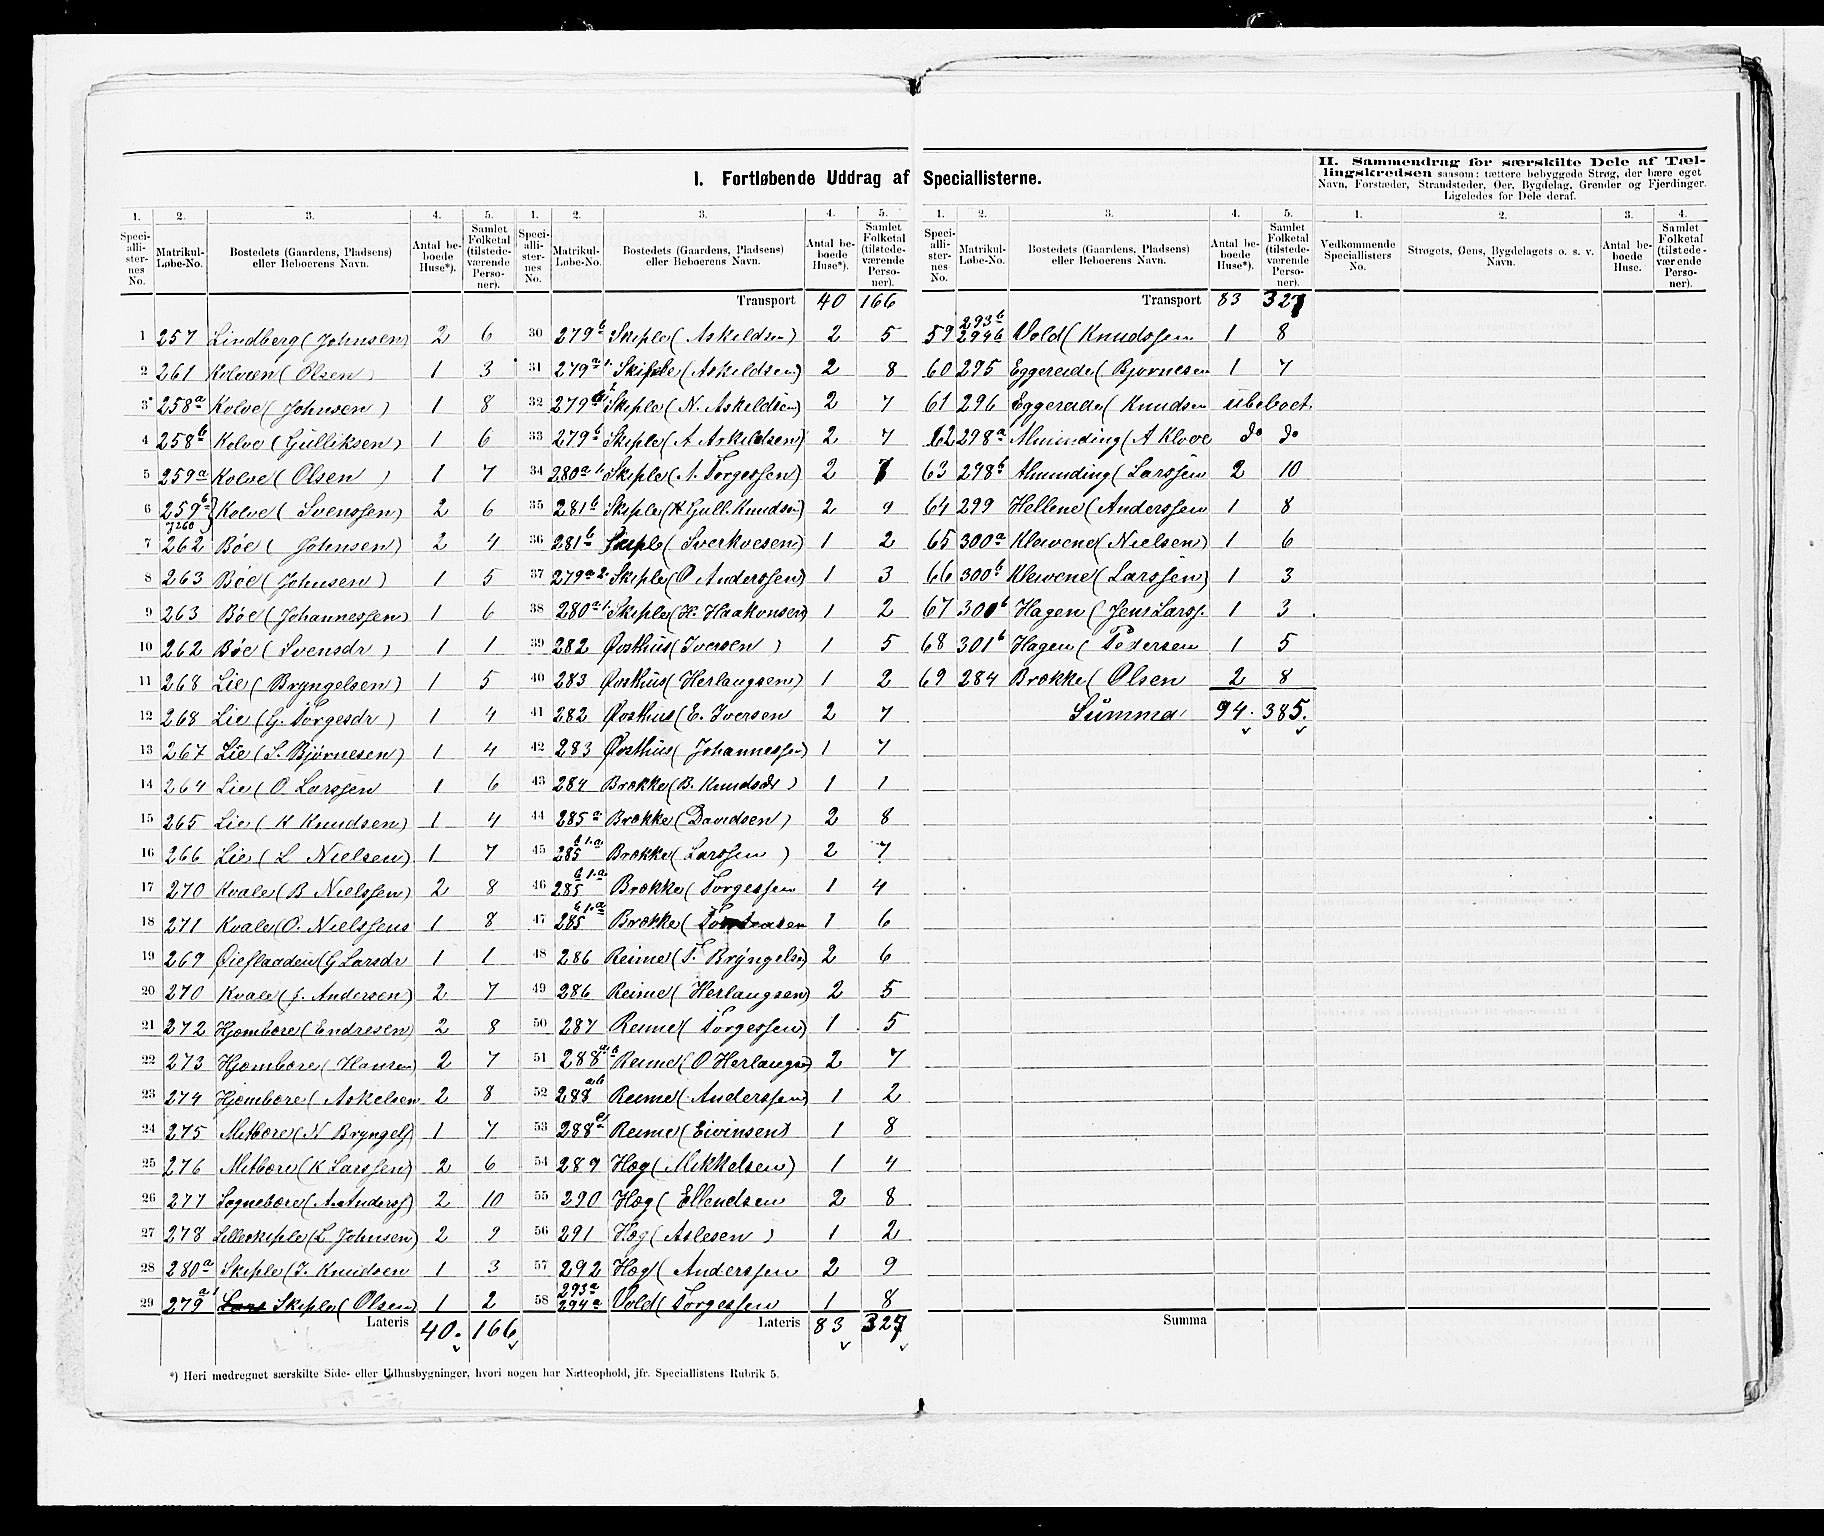 I. Fortløbende Uddrag af Speciallisterne.
II. Sammendrag for særskilte Dele af Tællingskredsen saasom: tættere bebyggede Strøg, der bære eget
Navn, Forstæder, Strandsteder, Øer, Bygdelag, Grender og Fjerdinger.
Ligeledes for Dele deraf.
1. 2. 3. 4. 5. 1. 2. 3. 4. 5. 1. 2. 3. 4. 5. 1. 2. 3. 4.
Speciallisternes No. Matrikul-Løbe-No. Bostedets (Gaardens, Pladsens) eller Beboerens Navn. Antal beboede Huse*). Samlet Folketal (tilstedeværende Personer).
Speciallisternes No. Matrikul-Løbe-No. Bostedets (Gaardens, Pladsens) eller Beboerens Navn. Antal beboede Huse*). Samlet Folketal (tilstedeværende Personer).
Speciallisternes No. Matrikul-Løbe-No. Bostedets (Gaardens, Pladsens) eller Beboerens Navn. Antal beboede Huse*). Samlet Folketal (tilstedeværende Personer).
Vedkommende Speciallisters No. Strøgets, Øens, Bygdelagets o. s. v. Navn. Antal beboede Huse. Samlet Folketal (tilstedeværende Personer).
1 257 Lindberg (Johnsen) 2 6
2 261 Kolveen (Olsen) 1 3
3 258a Kolve (Johnsen) 1 8
4 258b Kolve (Gulliksen) 1 6
5 259a Kolve (Olsen) 1 7
6 259b 260 Kolve (Svenssen) 2 6
7 262 Bøe (Johnsen) 2 4
8 263 Bøe (Johnsen) 1 5
9 263 Bøe (Johannessen) 1 6
10 262 Bøe (Svensdr) 1 1
11 268 Lie (Bryngelsen) 1 5
12 268 Lie (G. Torgesdr) 1 4
13 267 Lie (S. Bjørnesen) 1 4
14 264 Lie (O Larssen 1 6
15 265 Lie (K Knudsen) 1 4
16 266 Lie (L Nielsen) 1 7
17 270 Kvale (B Nielssen) 2 8
18 271 Kvale (O. Nielssens 1 8
19 269 Øieflaaden (G Larsdr 1 1
20 270 Kvale (J. Andersen) 2 7
21 272 Hjømbøre (Endresen) 2 8
22 273 Hjømbøre (Hansen) 2 7
23 274 Hjømbøre (Askelsen 2 8
24 275 Mitbøre (N Bryngels) 1 7
25 276 Mitbøre (K Larssen) 2 6
26 277 Sognebøre (A. Anderss) 2 10
27 278 Lilleskiple (L. Johnsen) 2 9
28 280a Skiple (J. Knudsen 1 3
29 279a1 Skiple (Olsen) 1 2
Lateris 40. 166
Transport 40 166
30 279b Skiple (Askeldsen) 2 5
31 279a1. Skiple (Askeldsen) 2 8
32 279b1 Skiple (N. Askeldsen) 2 7
33 279b Skiple (A Askeldsen) 2 7
34 280a1. Skiple (A. Torgessen) 2 7
35 281b Skiple (K Gull. Knudsen) 2 9
36 281b Skiple (Sverkvesen) 1 2
37 279a2. Skiple (O Anderssen) 1 3
38 280a1. Skiple (H. Haakonsen) 1 2
39 282 Østhus (Iversen) 1 5
40 283 Østhus (Herlaugsen) 1 2
41 282 Østhus (E. Iversen 2 7
42 283 Østhus (Johannessen) 1 7
43 284 Brække (B. Knudsdr) 1 1
44 285a Brække (Davidsen) 2 8
45 285b1.a Brække (Larssen) 2 7
46 285b1.a Brække (Torgessen 1 4
47 285b1.a Brække ( 1 6
48 286 Reime (T. Bryngelsn) 2 6
49 286 Reime (Herlaugsen) 2 5
50 287 Reime (Torgessen) 1 5
51 288ab Reime (O Herlaugsn) 2 7
52 288ab Reime (Anderssen) 1 2
53 288a Reime (Eivinsen) 1 8
54 289 Hæg (Mikkelsen) 1 4
55 290 Hæg (Ellendsen 2 8
56 291 Hæg (Aslesen) 1 2
57 292 Hæg (Anderssen 2 9
58 293a 294a Vold (Torgessen 1 8
Lateris 83 327
Transport 83 327
59 293b 294b Vold (Knudssen 1 8
60 295 Eggereide (Bjornesen 1 7
61 296 Eggereide (Knudsen ubeboet.
62 298a Alminding (A Klove do do
63 298b Alminding (Larssen 2 10
64 299 Hellene (Anderssen 1 8
65 300a Klevene (Nielsen) 1 6
66 300b Klevene (Larssen) 1 3
67 300b Hagen (Jens Larss. 1 3
68 301b Hagen (Pedersen 1 5
69 284 Brække (Olsen 2 8
Summa 94. 385.
Summa
*) Heri medregnet særskilte Side- eller Udhusbygninger, hvori nogen har Natteophold, jfr. Speciallistens Rubrik 5.